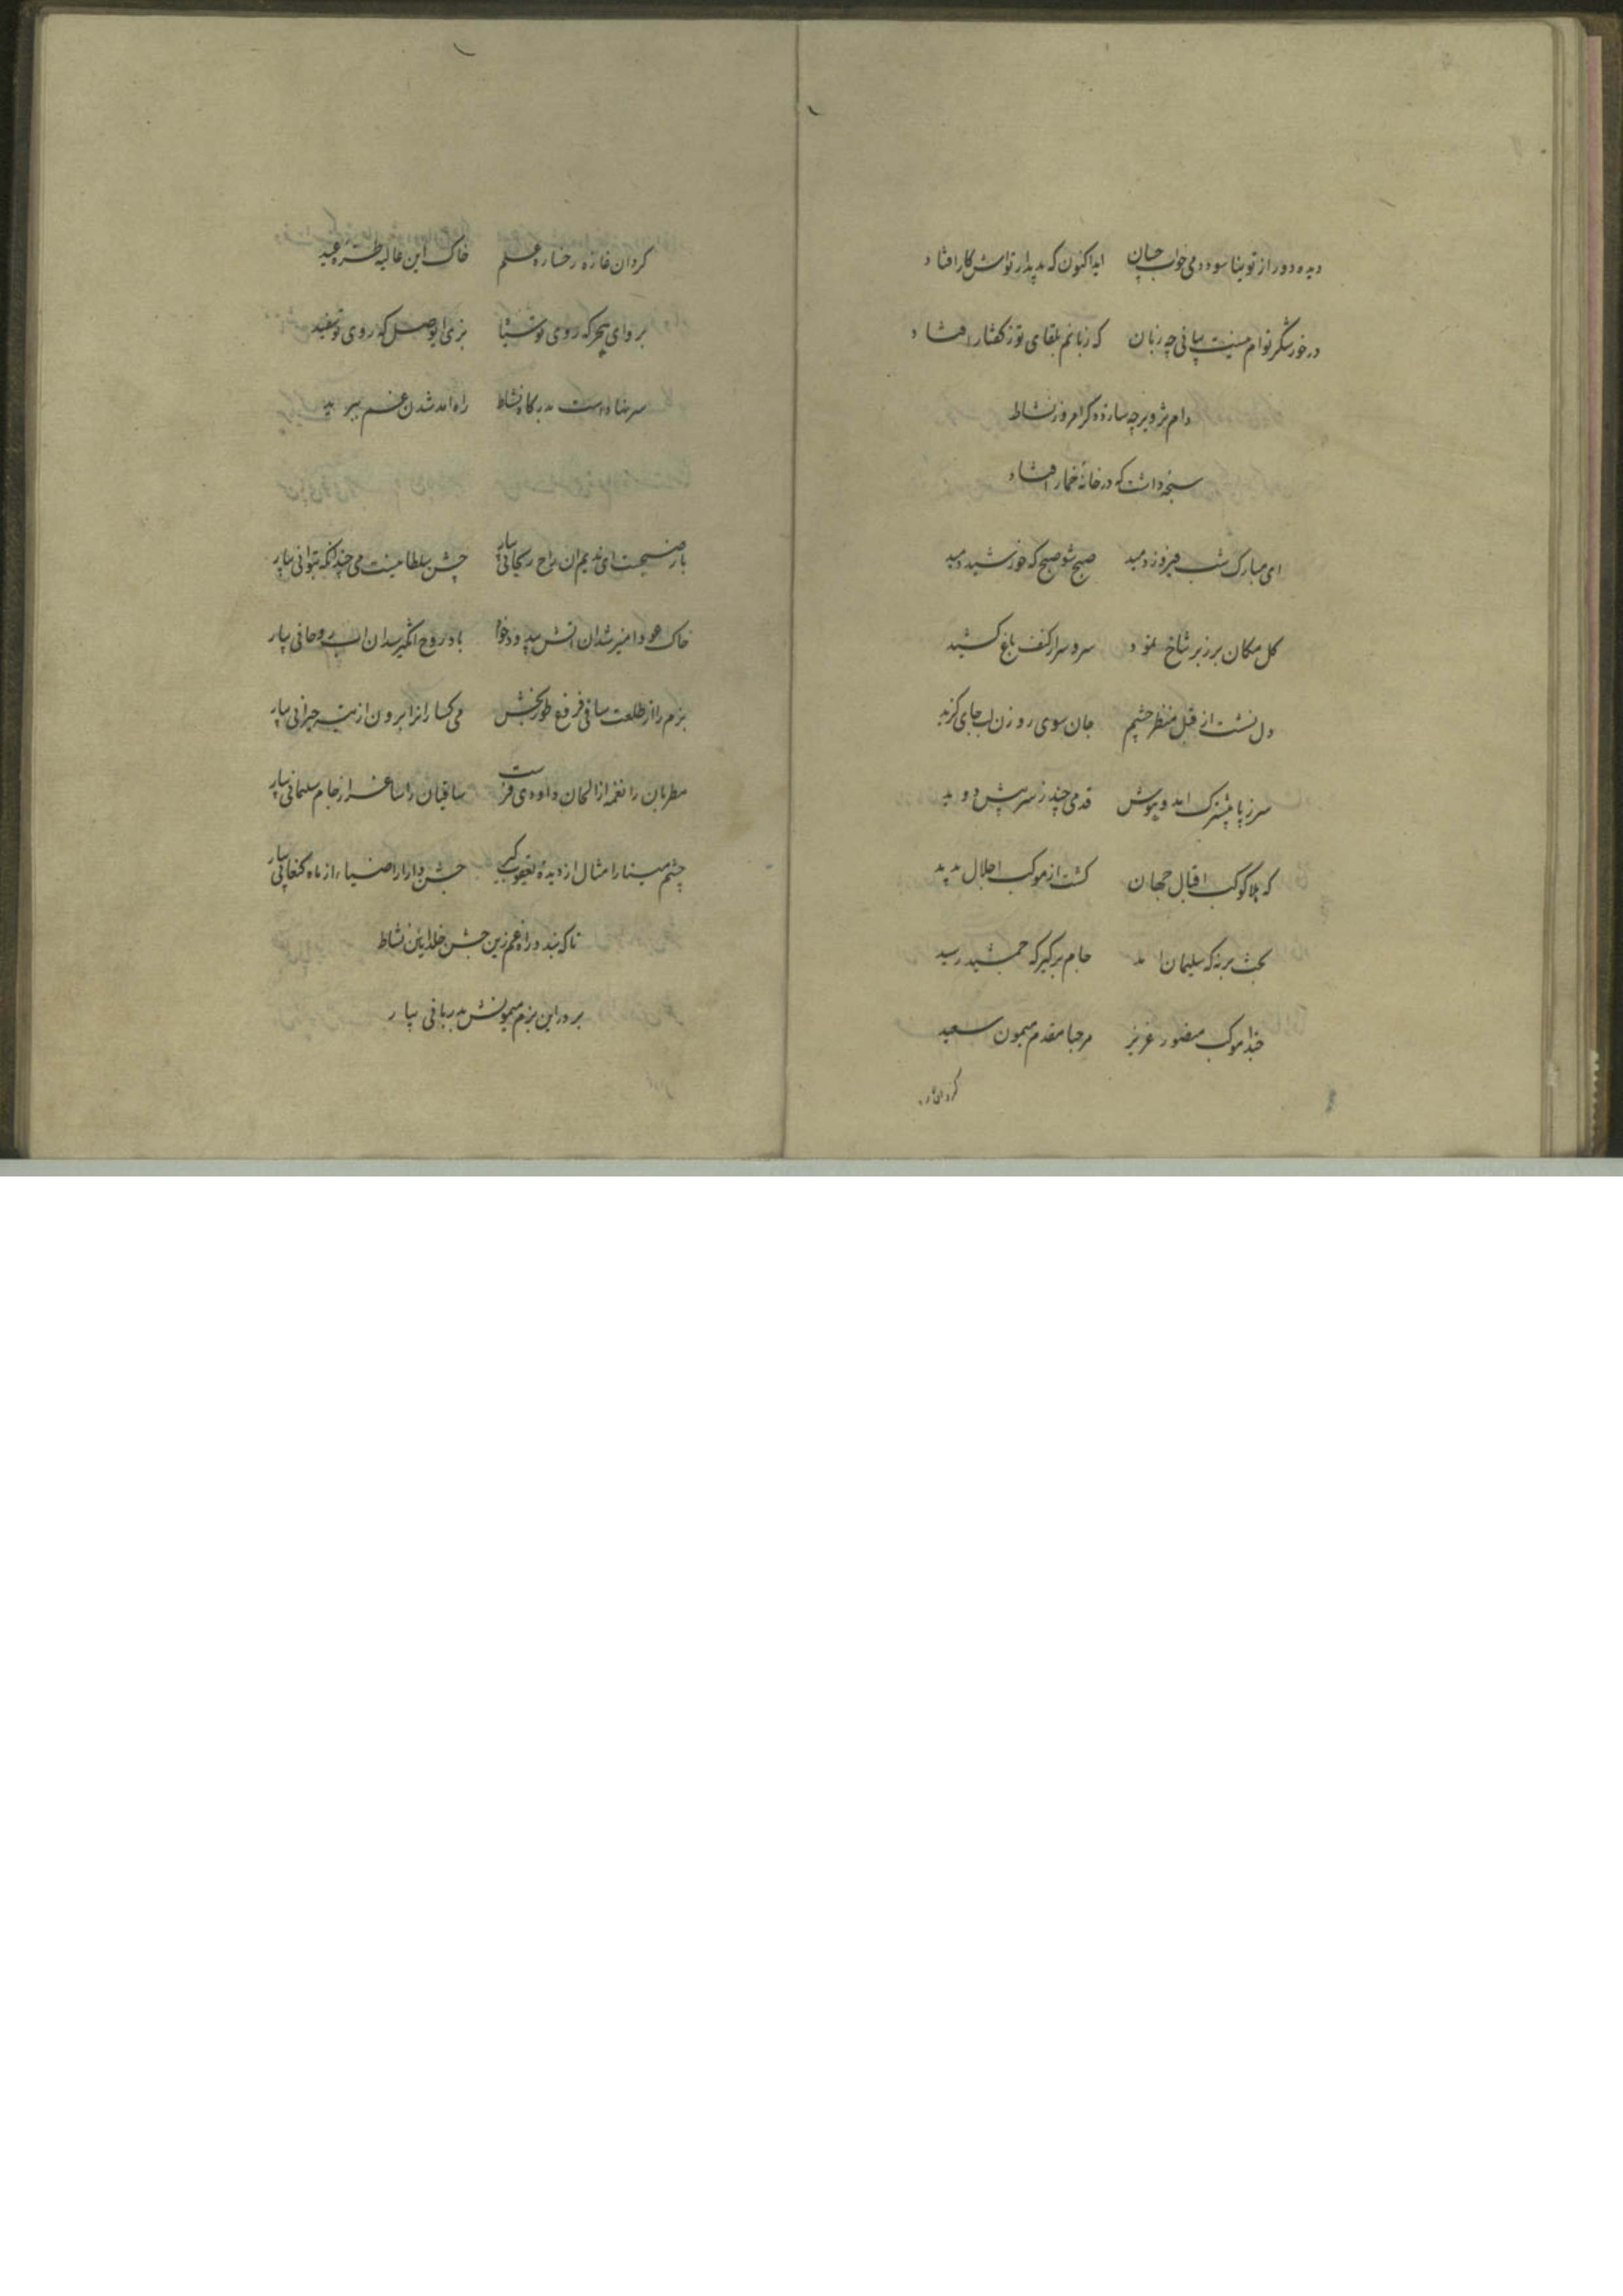 دیده دور از تو نیاسود دمی خواب چسان اید اکنون که بدیدار تواش کار افتاد
در خور شکر توام نیست بیانی چه زبان که زبانم بلقای تو ز کفتار افتاد
دام تزویر چه سازد دکر امروز نشاط
سبحه داشت که در خانه خمار افتاد
ای مبارک شب فیروز دمید صبح شو صبح که خورشید دمید
کل مکان بر زبر شاخ نمود سرو سر از کنف باغ کشید
دل نشست از قبل منظر چشم جان سوی روزن لب جای کزید
سر ز پا پیشترک امد و پوش قدمی چند ز سر پیش دوید
که هلا کوکب اقبال جهان کشت از موکب اجلال پدید
تخت بر نه که سلیمان امد جام بر کیر که جمشید رسید
حبذا موکب منصور عزیز مرحبا مقدم میمون سعید
کرد ان غازه
کرد ان غازه رخساره علم خاک این غالیه طره عید
برو ای هجر که روی تو سیاه بزی ای وصل که روی تو سفید
سر نهاده است بدرکاه نشاط راه امد شدن غم ببرید
بار ضیحت ای ندیم ان راح ریحانی بیار جشن سلطانیست می چندانکه بتوانی بیار
خاک عود امیز شد ان اتش بیدود خواه باد روح انکیز شد ان اب روحانی بیار
بزم را از طلعت ساقی فروغ طور بخش می کساران را برون از تیه حیرانی بیار
مطربان را نغمه از الحان داودی فرست ساقیان را ساغر از جام سلیمانی بیار
چشم مینا را مثال از دیده یعقوب کیر جشن دارا را ضیاء از ماه کنعانی بیار
تا که بندد راه غم زین جشن خلد ایین نشاط
بر در این بزم میمونش بدربانی بیار